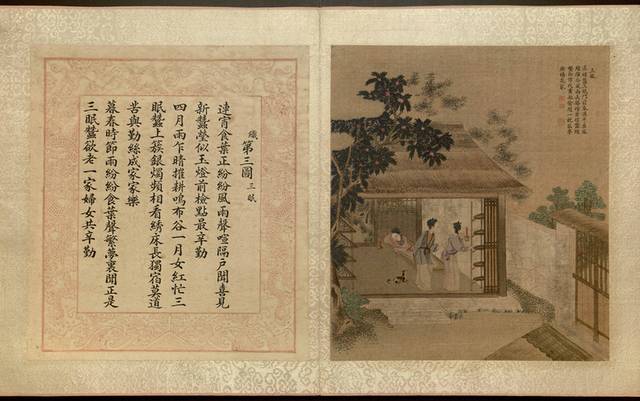 織 第三圖 三眠
連宵食葉正紛紛風雨聲喧隔户聞喜見
新蠶瑩似玉燈前檢點最辛勤
四月雨乍晴摧耕鳴布谷一月女紅忙三
眠蠶上簇銀燭頻相看綉床長獨宿莫道
苦與勤絲成家家樂
暮春時節雨紛紛食葉聲繁夢裏聞正是
三眠蠶欲老一家婦女共辛勤
三眠